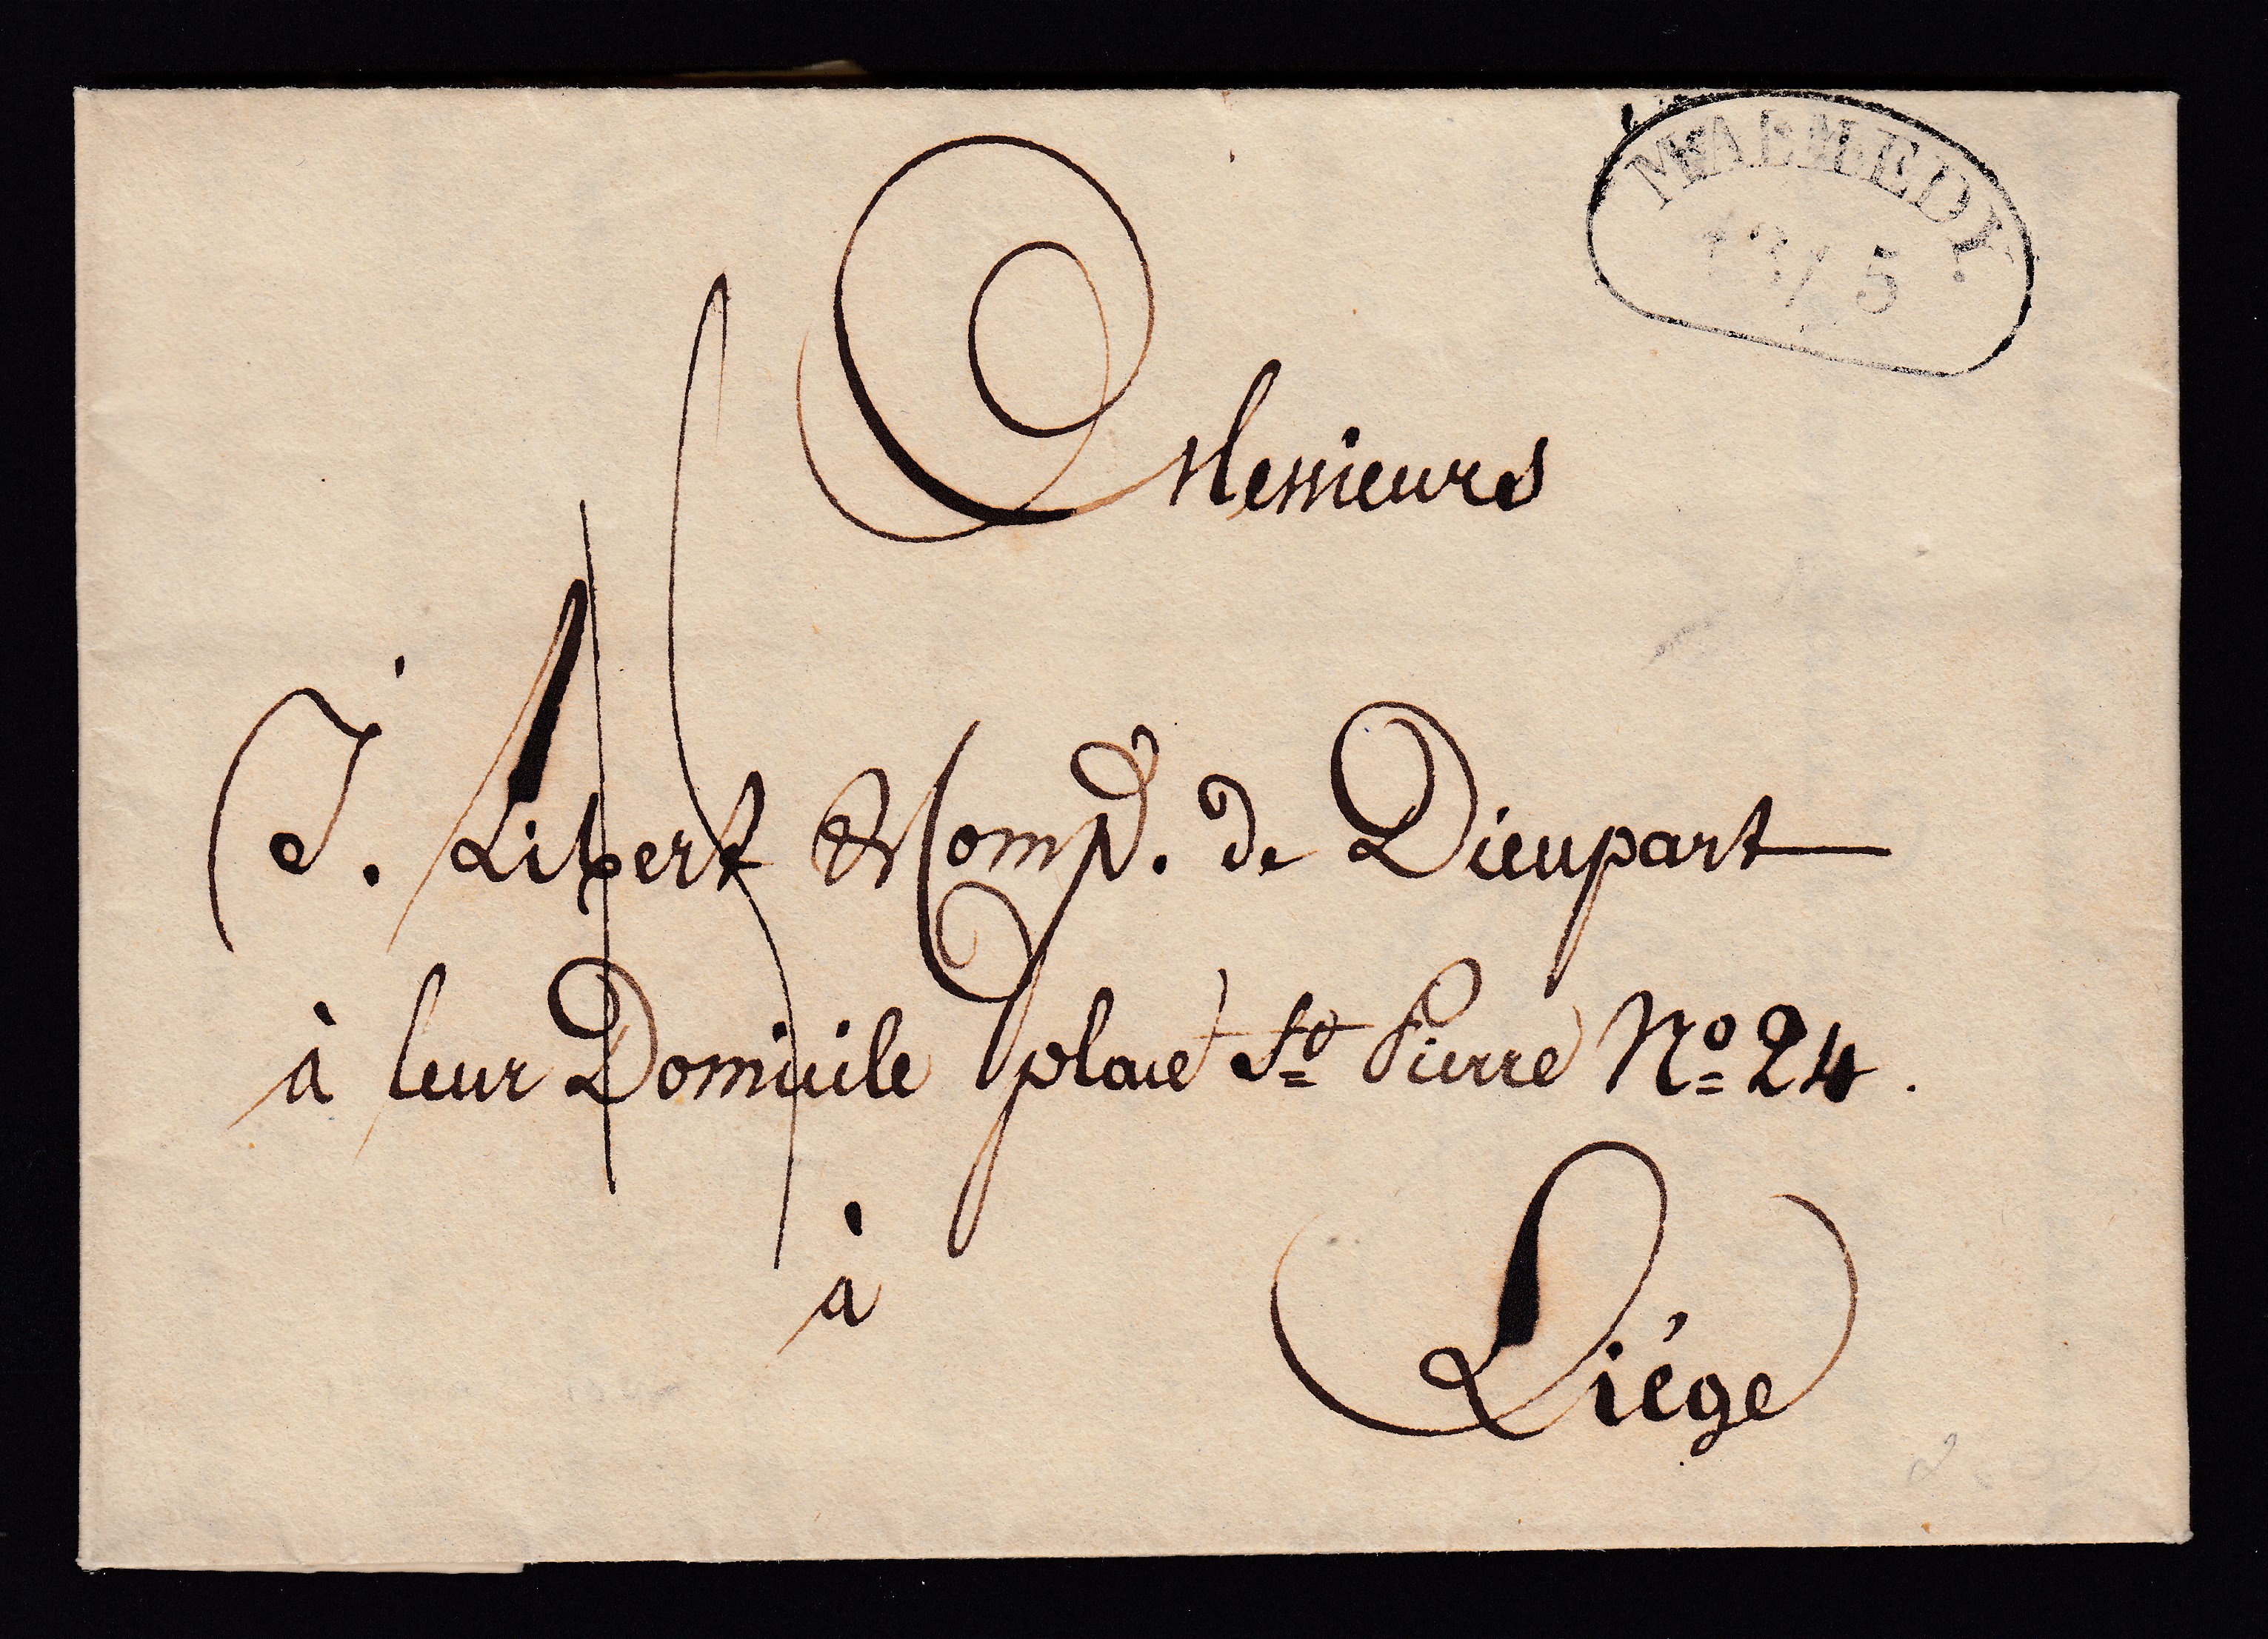 MALMEDY.
13/5
Messieurs
J. Libert & Comp^e. de Dieupart
à leur Domicile place S^t Pierre N^o 24.
à
Liége